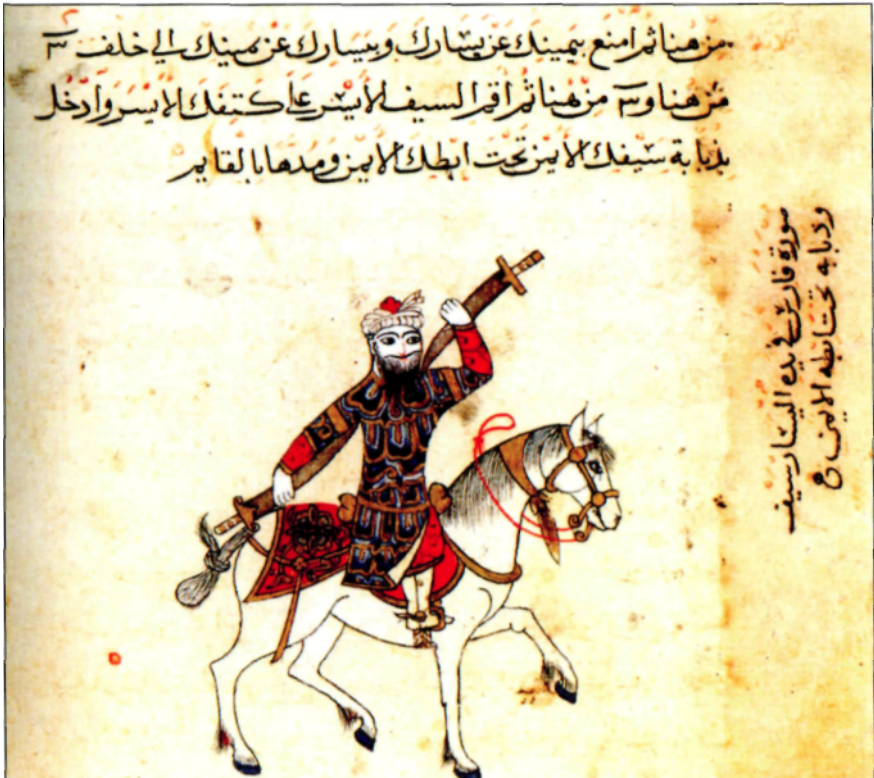 من هنا ثم امنع بيمينك عن يسارك وبيسارك عن يمينك الى خلف ٣
من هنا و٣ من هنا ثم اقم السيف الأيسر على كتفك الايسر وادخل
بذبابة سيفك الايمن تحت ابطك الايمن ومدها بالقايم
صورة فارس في يده اليسار سيف
وذبابه تحت ابطه الايمن